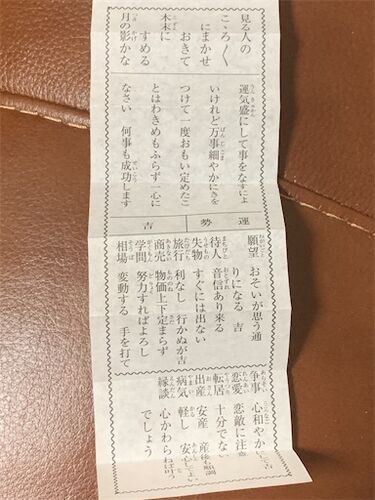 見る人の
こゝろ〱
にまかせ
おきて
木末に
すめる
月の影かな
運気盛にして事をなすによ
いけれど万事細やかに気を
つけて一度おもい定めたこ
とはわきめもふらず一心に
なさい 何事も成功します
運勢
吉
願望 おそいが思う通
りになる 吉
待人 音信あり来る
失物 すぐには出ない
旅行 利なし 行かぬが吉
商売 物価上下定まらず
学問 努力すればよろし
相場 変動する 手を打て
争事 心和やかに 吉
恋愛 恋敵に注意
転居 十分でない
出産 安産 産後も順調
病気 軽し 安心してよい
縁談 心かわらねば叶う
でしょう